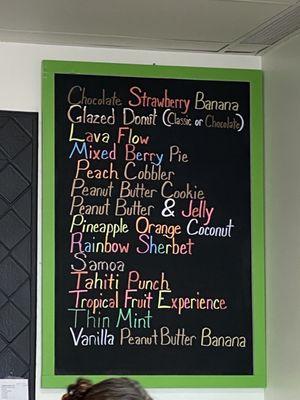 Chocolate Strawberry Banana
Glazed Donut (Classic or Chocolate)
Lava Flow
Mixed Berry Pie
Peach Cobbler
Peanut Butter Cookie
Peanut Butter & Jelly
Pineapple Orange Coconut
Rainbow Sherbet
Samoa
Tahiti Punch
Tropical Fruit Experience
Thin Mint
Vanilla Peanut Butter Banana